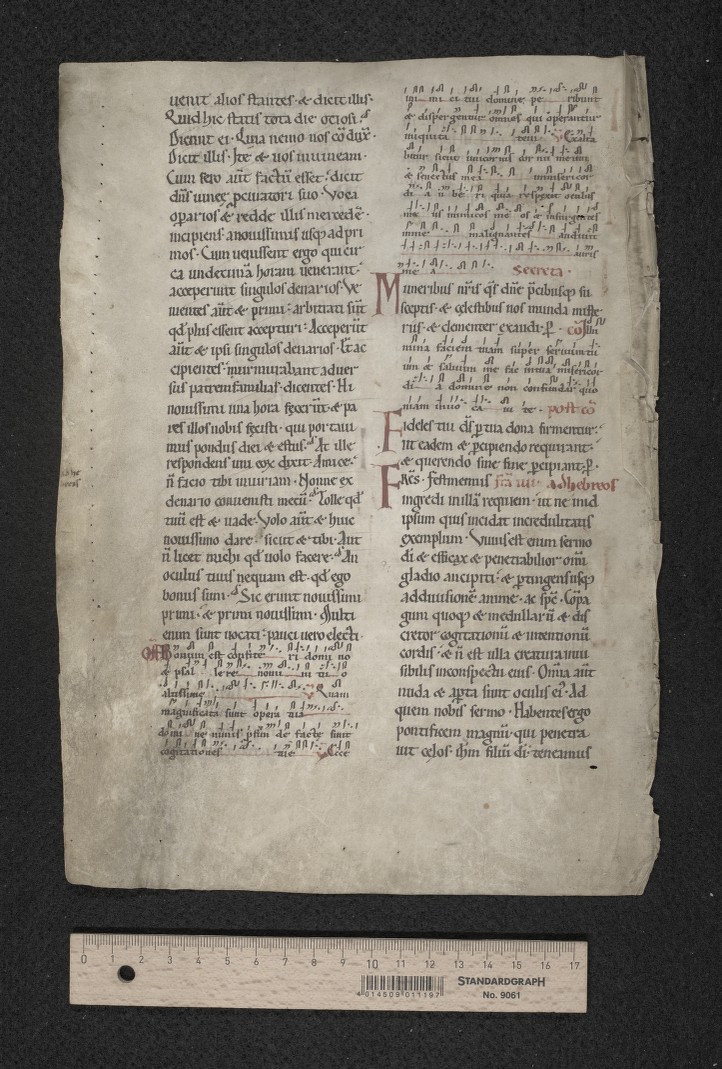 uenit alios stantes · & dicit illis ·
Quid hic statis tota die otiosi ·
Dicunt ei · Quia nemo nos cōdux̄ ·
Dicit illis · Ite & uos inuineam ·
Cum sero aūt factū esset · dicit
dn̄s uineę pcuratori suo · Voca
oꝑarios & redde illis mercedē ·
incipiens anouissimis usq; adpri
mos · Cum uenissent ergo qui cir
ca undecimā horam uenerant ·
acceperunt singulos denarios · Ve
nientes aūt & primi · arbitrati sūt
qd̄ plus essent accepturi · Acceperūt
aūt & ipsi singulos denarios · Et ac
cipientes murmurabant aduer
sus patremfamilias · dicentes · Hi
nouissimi una hora fecerūt & pa
res illos nobis fecisti · qui portaui
mus pondus diei & estus · At ille
respondens uni eoꝝ dixit · Amice ·
n̄ facio tibi iniuriam · Nonne ex
denario conuenisti mecū · Tolle qd̄
tuū est & uade · Volo aūt & huic
nouissimo dare · sicut & tibi · Aut
n̄ licet michi qd̄ uolo facere · An
oculus tuus nequam est · qd̄ ego
bonus sum · Sic erunt nouissimi
primi · & primi nouissimi · Multi
enim sunt uocati · pauci uero electi ·
Bonum est confite ri domi no
& psal le re nomi ni tu o
altissime Quam
magnificata sunt opera tua
domi ne nimis ꝓfun de facte sunt
cogitationes tue Ecce
ini mi ci tui domine pe ribunt
& dispergentur omnes qui operantur
iniquita tem Exalta
bitur sicut unicornis cor nu meum
& senectus mea inmisericor
di a u be ri quia respexit oculus
me us inimicos me os & insurgentes
inme malignantes audiuit
auris
me a Secreta ·
Muneribus nr̄is qs̄ dn̄e p̄cibusq; su
sceptis · & cęlestibus nos munda miste
riis · & clementer exaudi · ꝑ · cō Illu
mina faciem tuam super seruum tu
um & saluum me fac intua misericor
di a domine non confundar quo
niam inuo ca ui te · post cō
Fideles tui ds̄ ꝑ tua dona firmentur ·
ut eadem & ꝑcipiendo requirant ·
& querendo sine fine ꝑcipiant · ꝑ ·
Fr̄es · festinemus Adhebreos
ingredi inillā requiem · ut ne inid
ipsum quis incidat incredulitatis
exemplum · Viuus est enim sermo
di & efficax & penetrabilior om̄i
gladio ancipiti · & ꝑtingens usq;
addiuisionē anime · ac sp̄c · Cōpa
gum quoq; & medullarū & dis
cretor cogitationū & intentionū
cordis · & n̄ est ulla creatura inui
sibilis inconspectu eius · Om̄ia aūt
nuda & aꝑta sunt oculis ei᾽ · Ad
quem nobis sermo · Habentes ergo
pontificem magnū · qui penetra
uit cęlos · ih̄m filiū di · teneamus
0 1 2 3 4 5 6 7 8 9 10 11 12 13 14 15 16 17
4 014509 011197
STANDARDGRAPH
No. 9061